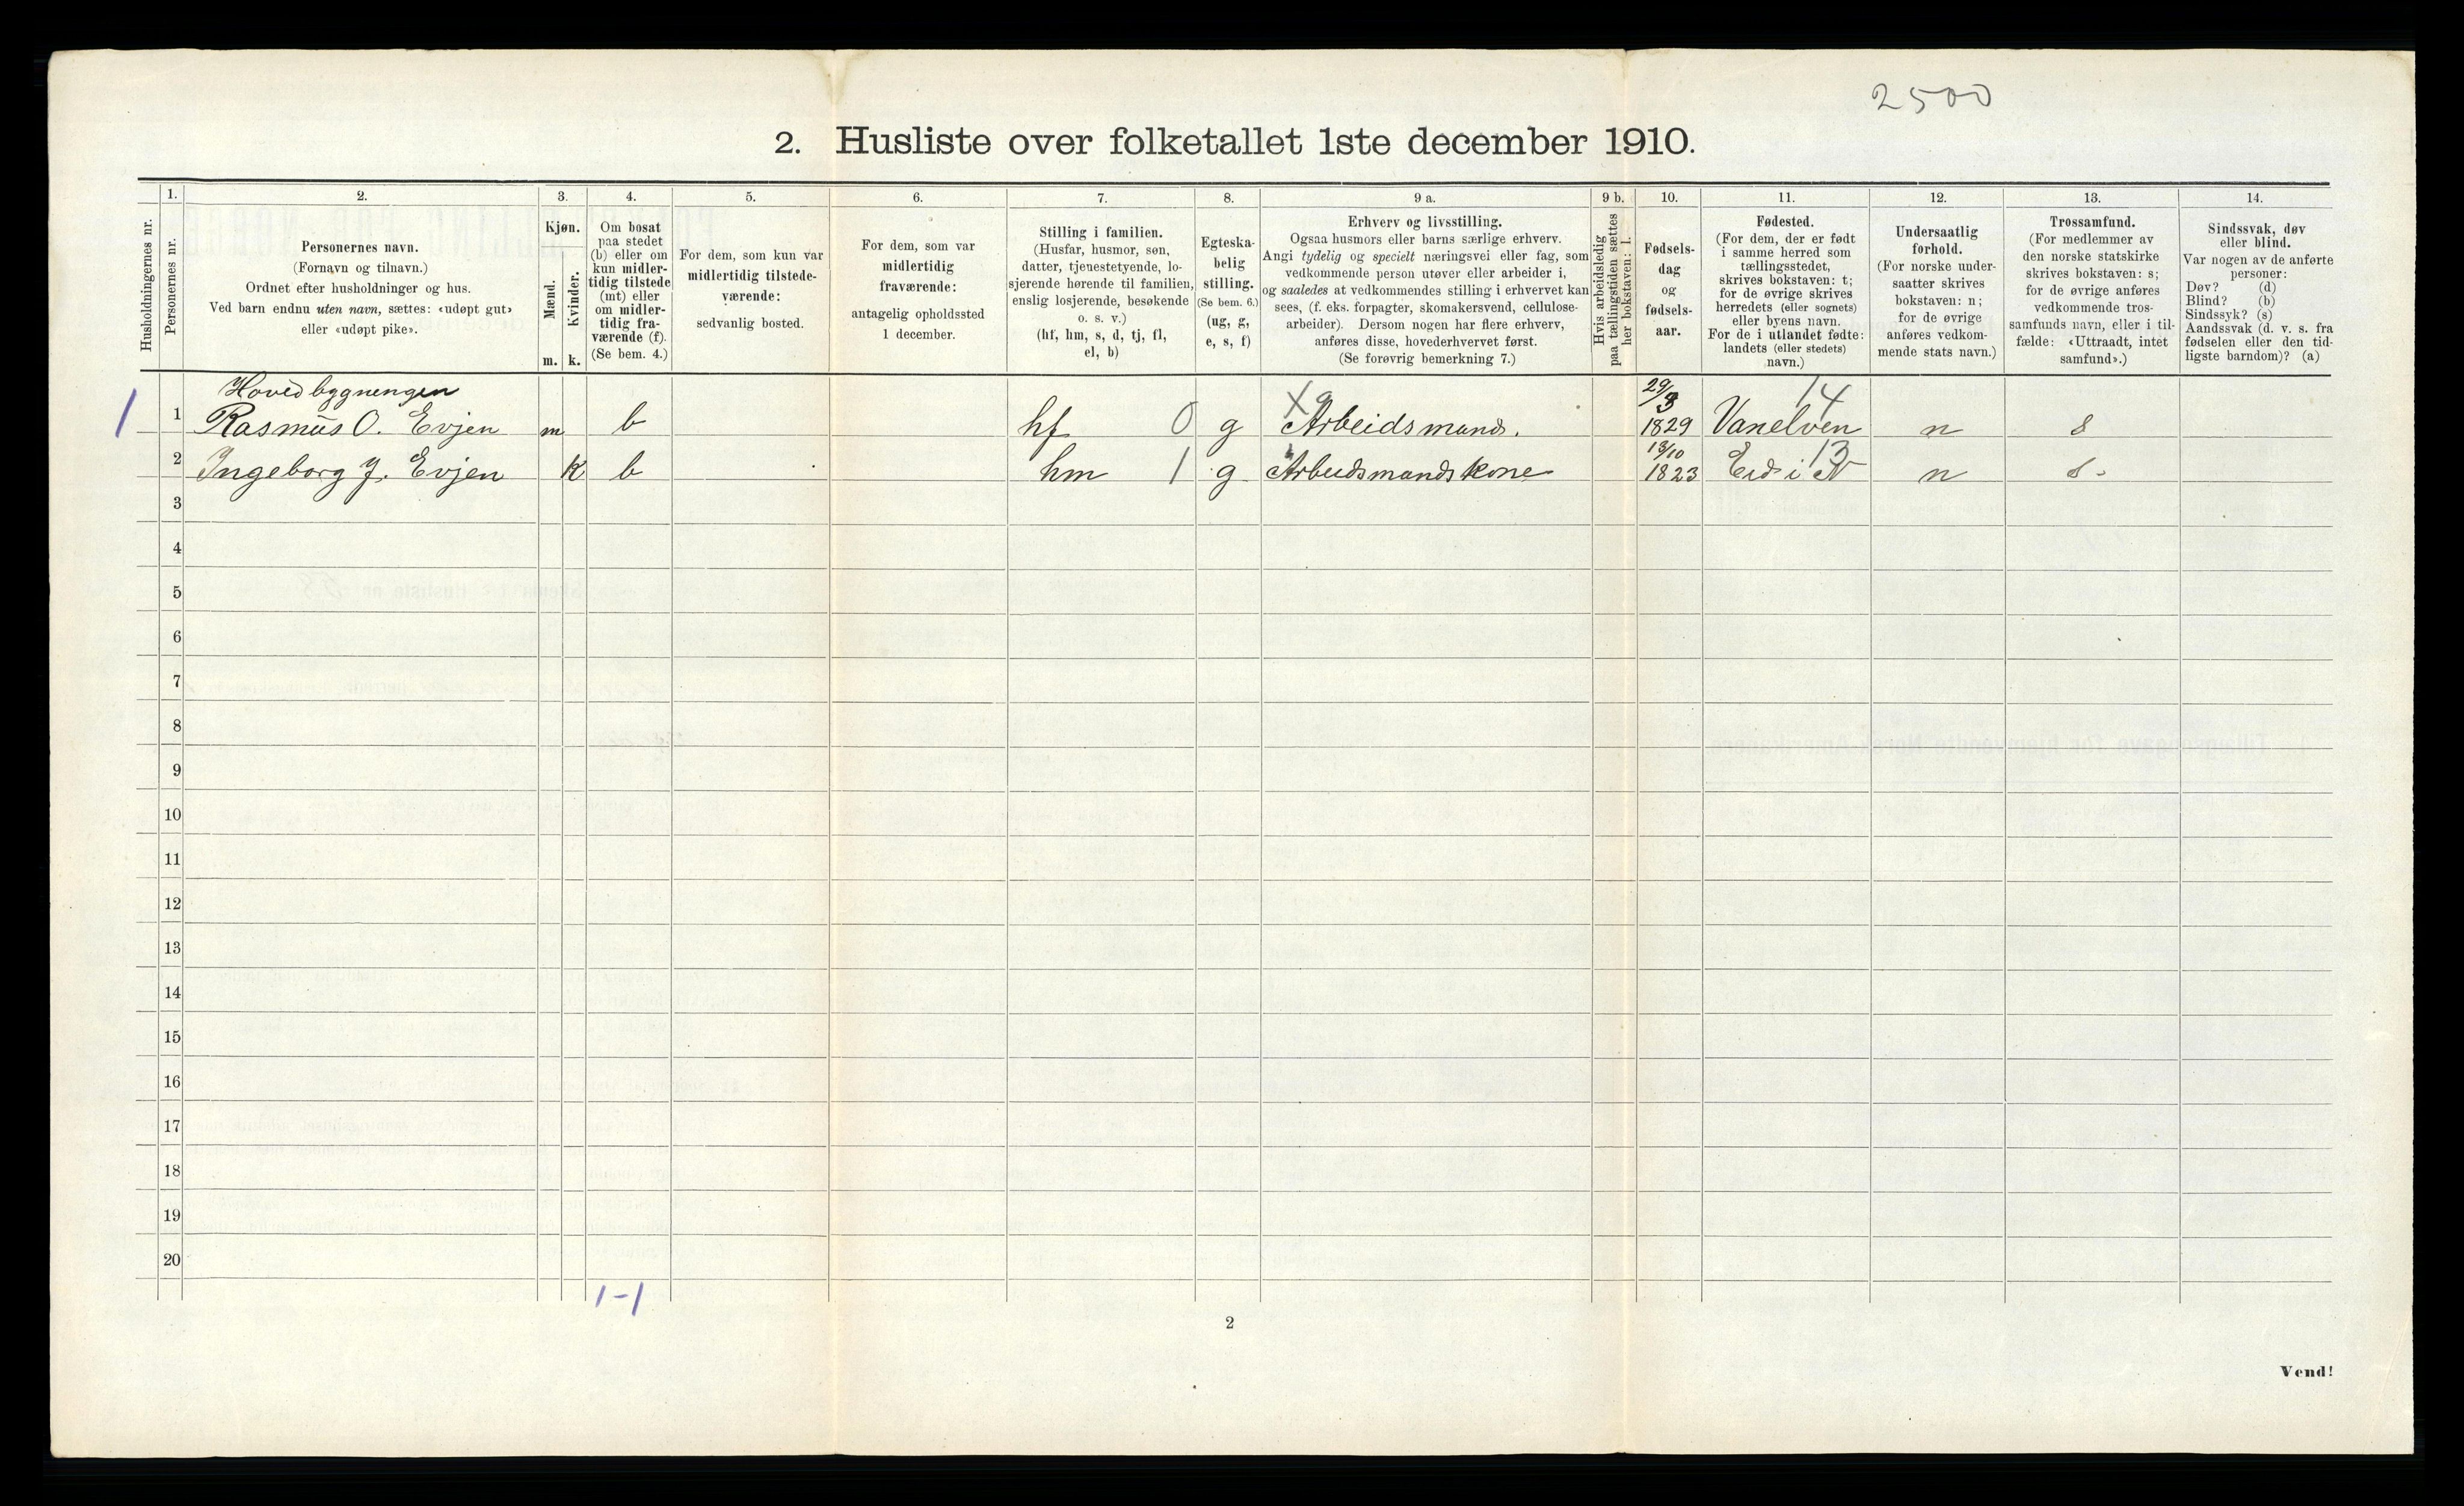 2500
2. Husliste over folketallet 1ste december 1910.
Husholdningernes nr.
1.
Personernes nr.
2.
Personernes navn.
(Fornavn og tilnavn.)
Ordnet efter husholdninger og hus.
Ved barn endnu uten navn, sættes: «udøpt gut»
eller «udøpt pike».
3.
Kjøn.
Mænd.
Kvinder.
m. k.
4.
Om bosat
paa stedet
(b) eller om
kun midler-
tidig tilstede
(mt) eller
om midler-
tidig fra-
værende (f).
(Se bem. 4.)
5.
For dem, som kun var
midlertidig tilstede-
værende:
sedvanlig bosted.
6.
For dem, som var
midlertidig
fraværende:
antagelig opholdssted
1 december.
7.
Stilling i familien.
(Husfar, husmor, søn,
datter, tjenestetyende, lo-
sjerende hørende til familien,
enslig losjerende, besøkende
o. s. v.)
(hf, hm, s, d, tj, fl,
el, b)
8.
Egteska-
belig
stilling.
(Se bem. 6.)
(ug, g,
e, s, f)
9 a.
Erhverv og livsstilling.
Ogsaa husmors eller barns særlige erhverv.
Angi tydelig og specielt næringsvei eller fag, som
vedkommende person utøver eller arbeider i,
og saaledes at vedkommendes stilling i erhvervet kan
sees, (f. eks. forpagter, skomakersvend, cellulose-
arbeider). Dersom nogen har flere erhverv,
anføres disse, hovederhvervet først.
(Se forøvrig bemerkning 7.)
9 b.
Hvis arbeidsledig
paa tællingstiden sættes
her bokstaven: l.
10.
Fødsels-
dag
og
fødsels-
aar.
11.
Fødested.
(For dem, der er født
i samme herred som
tællingsstedet,
skrives bokstaven: t;
for de øvrige skrives
herredets (eller sognets)
eller byens navn.
For de i utlandet fødte:
landets (eller stedets)
navn.)
12.
Undersaatlig
forhold.
(For norske under-
saatter skrives
bokstaven: n;
for de øvrige
anføres vedkom-
mende stats navn.)
13.
Trossamfund.
(For medlemmer av
den norske statskirke
skrives bokstaven: s;
for de øvrige anføres
vedkommende tros-
samfunds navn, eller i til-
fælde: «Uttraadt, intet
samfund».)
14.
Sindssvak, døv
eller blind.
Var nogen av de anførte
personer:
Døv? (d)
Blind? (b)
Sindssyk? (s)
Aandssvak (d. v. s. fra
fødselen eller den tid-
ligste barndom)? (a)
Hovedbygningen 29/3 14
1 1 Rasmus O. Evjen m b hf 0 g Arbeidsmand. 1829 Vanelven n s
13/10 13
2 Ingeborg J. Evjen k b hm 1 g Arbeidsmandskone 1823 Eid i N n s
3
4
5
6
7
8
9
10
11
12
13
14
15
16
17
18
19
20
1-1
2
Vend!